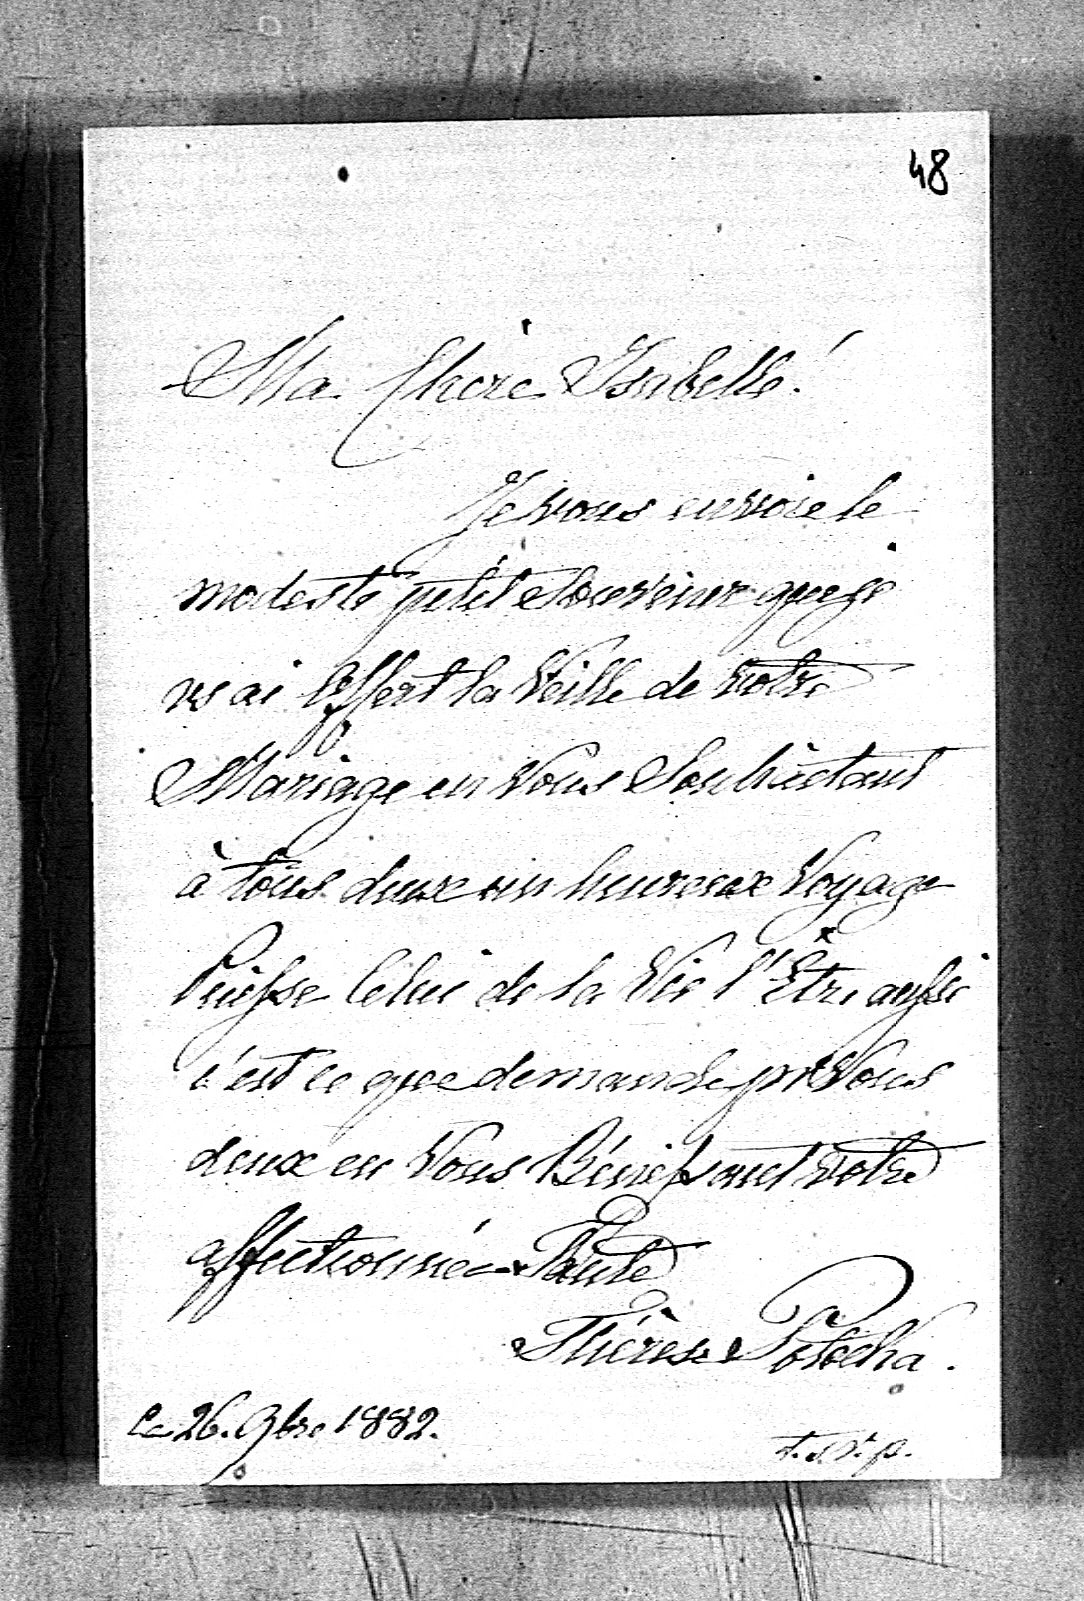 48
Ma Chère Isabelle!
Je vous envoie le
modeste petit Souvenir que je
vs ai Offert la Veille de votre
Mariage en Vous Souhaitant
à tous deux un heureux Voyage
Puisse Celui de la Vie l'Être aussi
c'est ce que demande pr Vous
deux en Vous Bénissant votre
affectionnée Tante
Thérèse Potocka.
Le 26. 9bre 1882.
t. s. v. p.